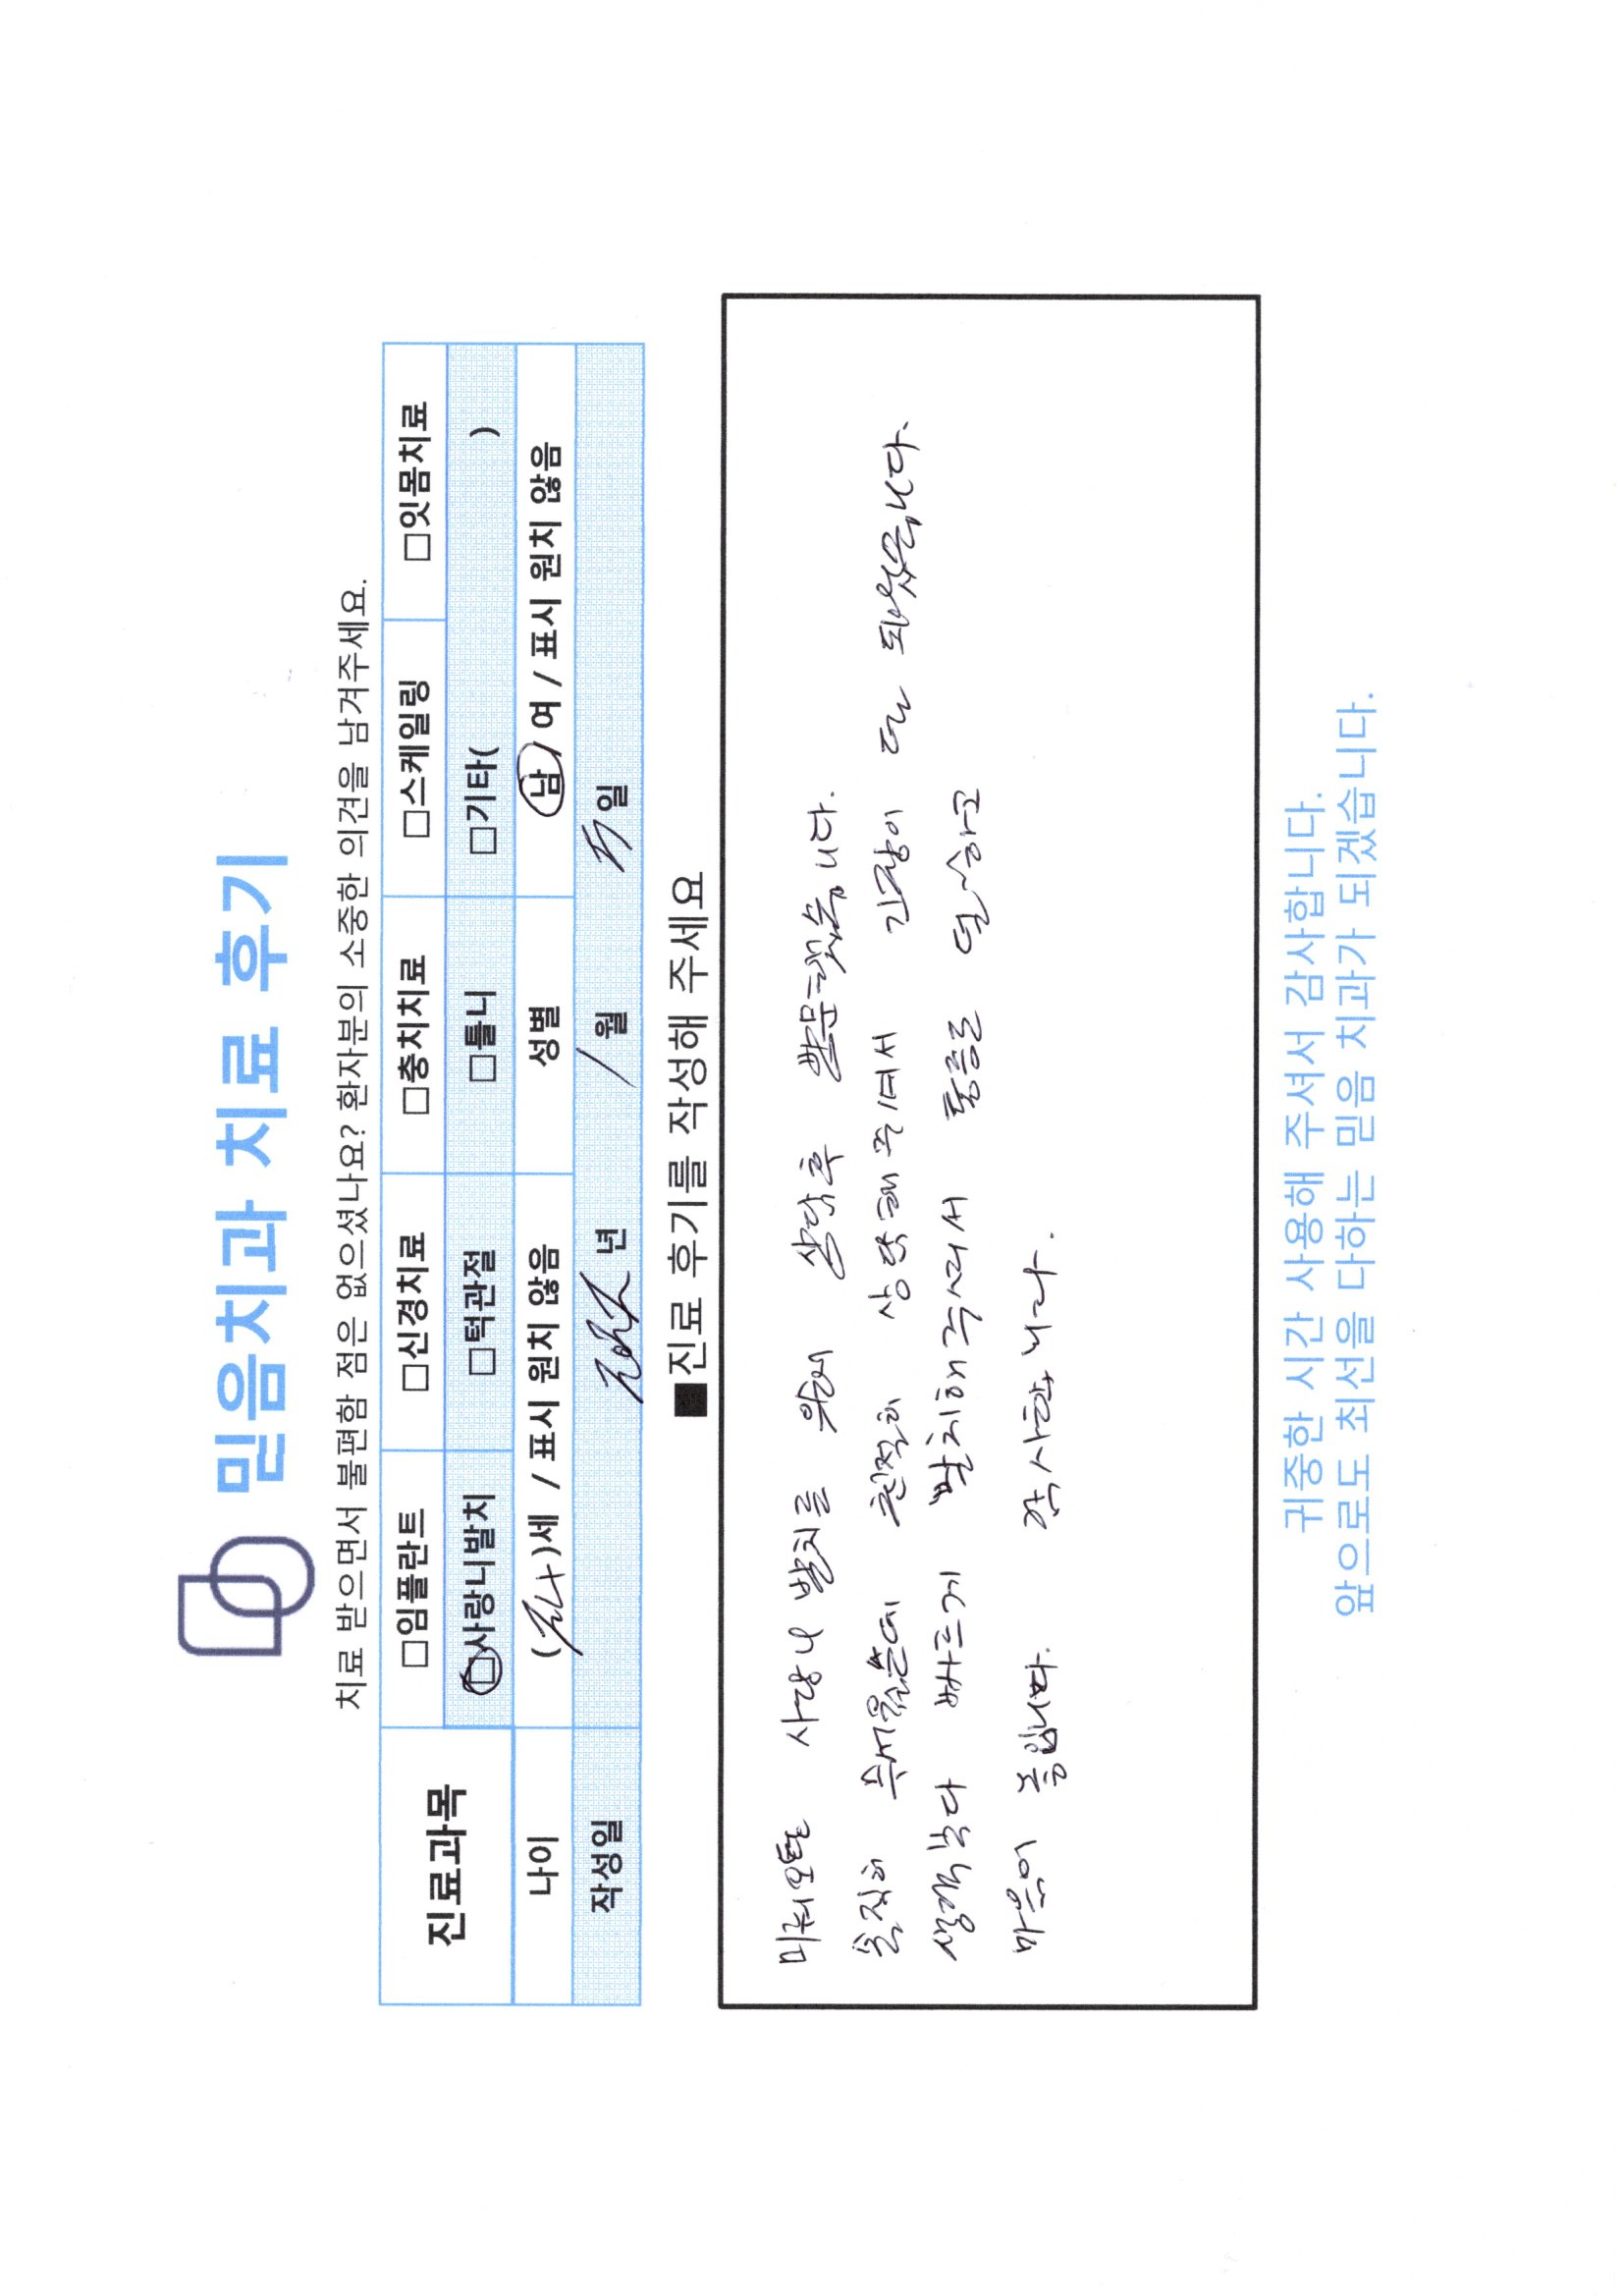 믿음치과 치료 후기
치료 받으면서 불편함 점은 없으셨나요? 환자분의 소중한 의견을 남겨주세요.
진료과목 □임플란트 □신경치료 □충치치료 □스케일링 □잇몸치료
□사랑니발치 □턱관절 □틀니 □기타( )
나이 ( )세 / 표시 원치 않음 성별 남 / 여 / 표시 원치 않음
작성일 년 1월 일
■진료 후기를 작성해 주세요
미뤄오던 사랑니 발치를 위해 상담후 방문했습니다.
솔직히 무서웠는데 친절히 상담해주셔서 긴장이 덜 되었습니다.
생각보다 빠르게 발치해주셔서 통증도 덜하고
마음이 놓입니다. 감사합니다.
귀중한 시간 사용해 주셔서 감사합니다.
앞으로도 최선을 다하는 믿음 치과가 되겠습니다.